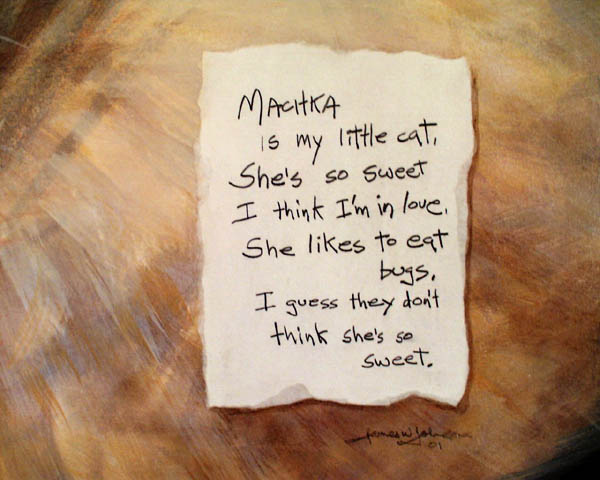 MACHKA
is my little cat,
She's so sweet
I think I'm in love.
She likes to eat
bugs,
I guess they don't
think she's so
sweet.
James W Johnson
01